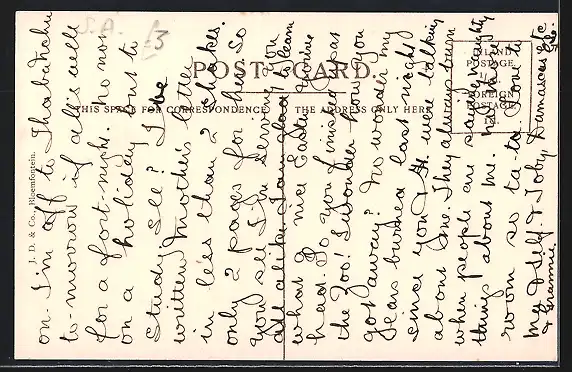 S.A.
£3
POST CARD.
THIS SPACE FOR CORRESPONDENCE
THE ADDRESS ONLY HERE
INLAND
POSTAGE
FOREIGN
POSTAGE
J. D. & Co., Bloemfontein.
on. I'm off to Thabanchu
to-morrow if all is well
for a fort-night. No more
on a holiday
study see? I've
written Mother's letter
in less than 2 shakes.
only 2 pages for her. So
you see I'm serving you
all alike. I am glad to learn
what a nice Easter you've
had. So you finished up as
the Zoo! I wonder how you
got away? No wonder my
ears burned last night
since you & H were talking
about one. They always burn
when people are saying naughty
things about me. No more
room so ta-ta. Love to
my & Toby Damascus etc.
& Grannie.